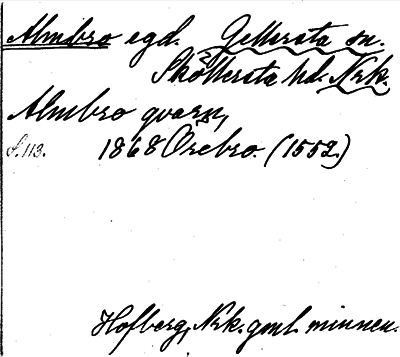 Almbro egd. Gellersta sn.
Sköllersta hd. Nrk.
Almbro qvarn,
S. 113. 1868 Örebro. (1552)
Hofberg, Nrk. gml. minnen.